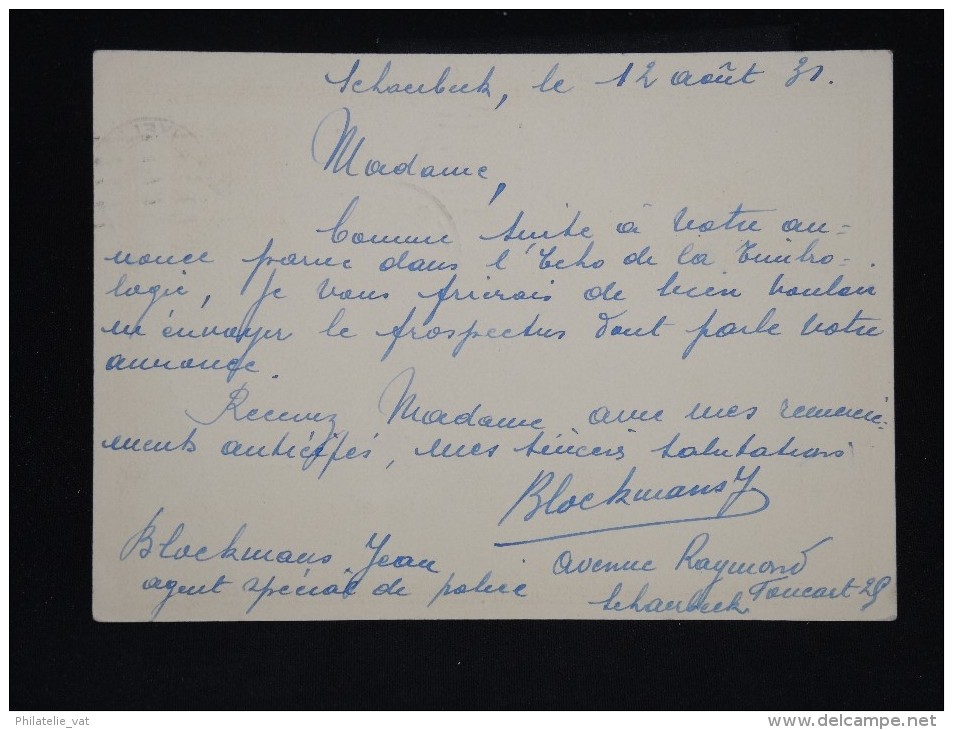 Schaerbeek, le 12 août 31.
Madame,
Comme suite à votre an=
nonce parue dans l'Echo de la Timbro=
logie, je vous prierais de bien vouloir
m'envoyer le prospectus dont parle votre
annonce.
Recevez Madame avec mes remercie=
ments anticipés, mes sincères salutations
Blockmans J
Blockmans Jean
agent spécial de police
avenue Raymond
Foucart 29
Schaerbeek
Philatelie_vat
www.delcampe.net